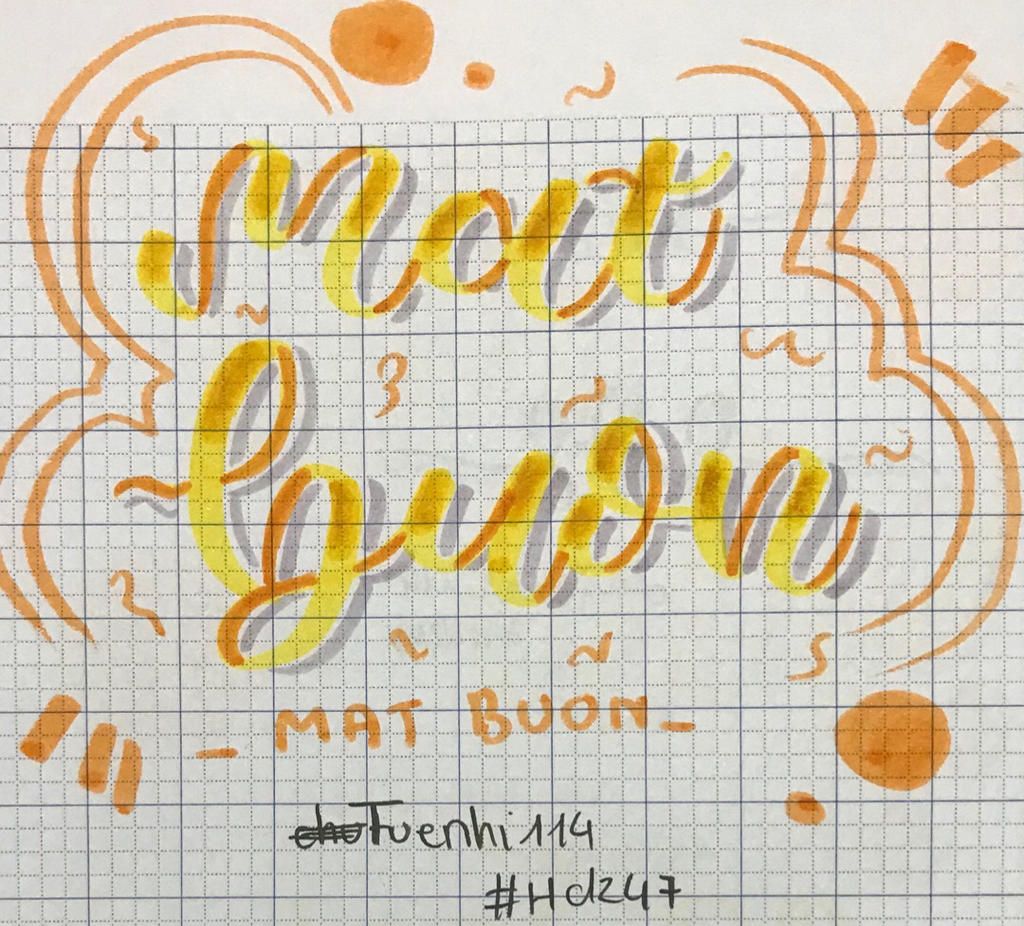 Mat
buon
- MAT BUON -
Tuenhi114
#Hdz47